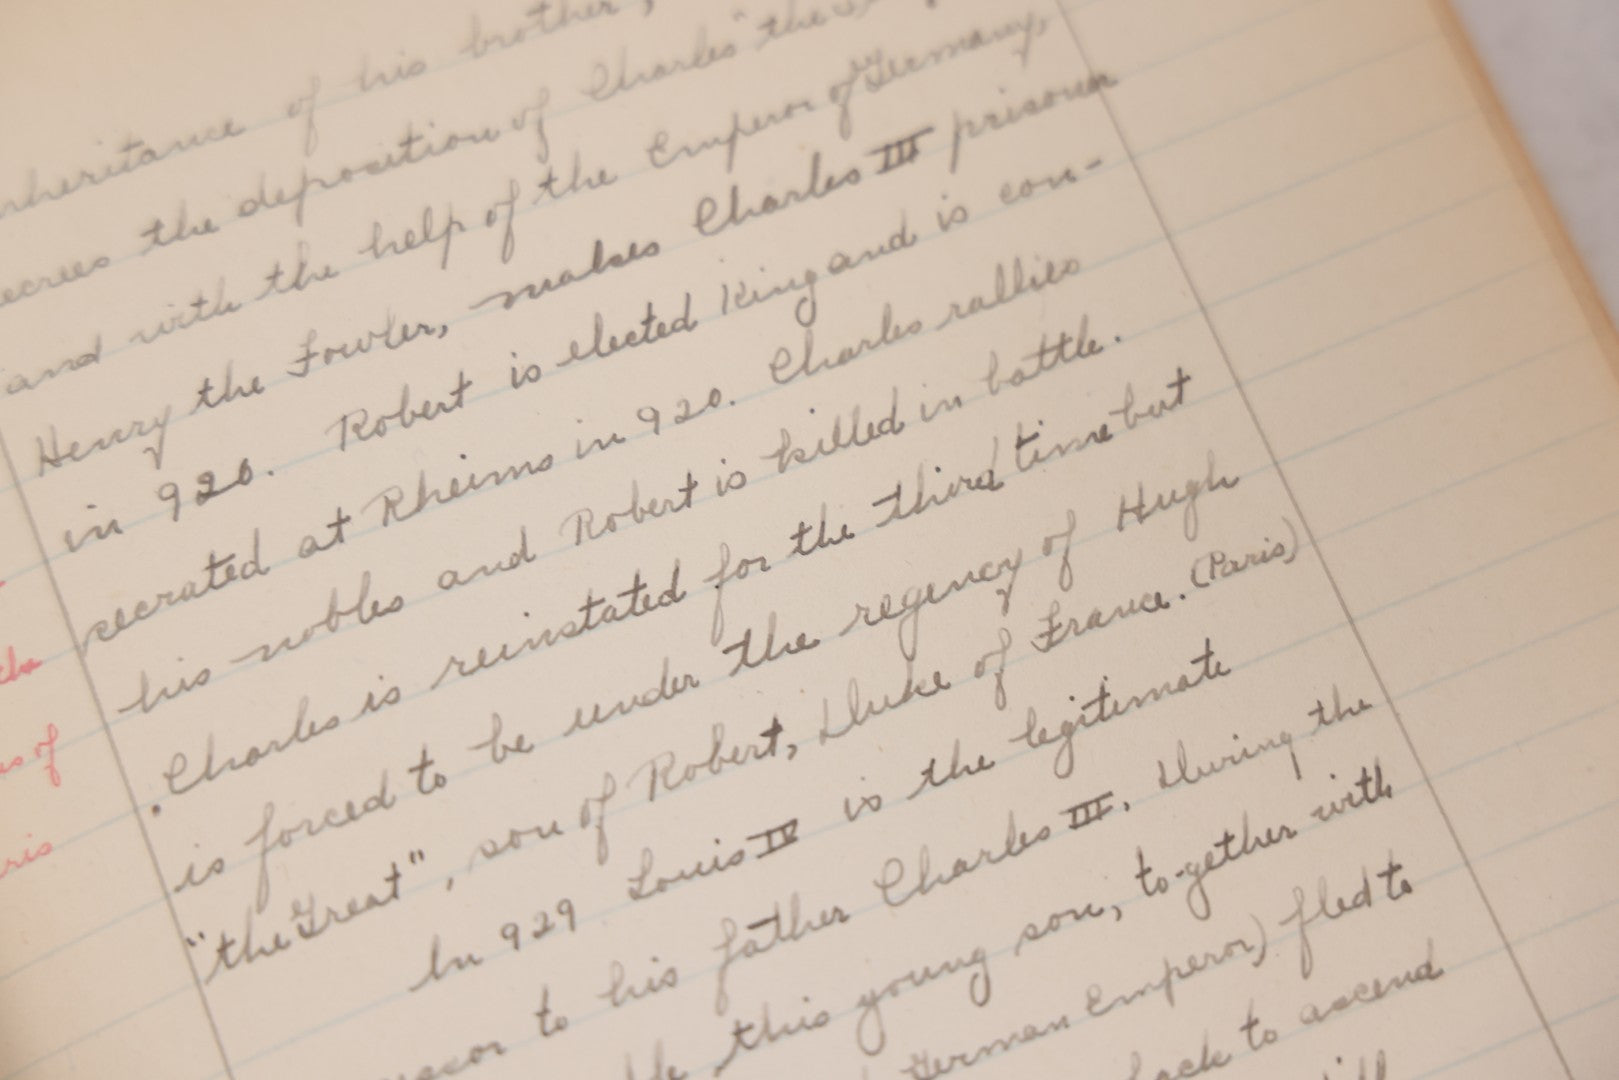 inheritance of his brother,
decrees the deposition of Charles "the
and with the help of the Emperor of Germany,
Henry the Fowler, makes Charles III prisoner
in 920. Robert is elected King and is con-
secrated at Rheims in 920. Charles rallies
his nobles and Robert is killed in battle.
Charles is reinstated for the third time but
is forced to be under the regency of Hugh
"the Great", son of Robert, Duke of France. (Paris)
In 929 Louis IV is the legitimate
to his father Charles III. During the
this young son, to-gether with
German Emperor) fled to
back to ascend
of